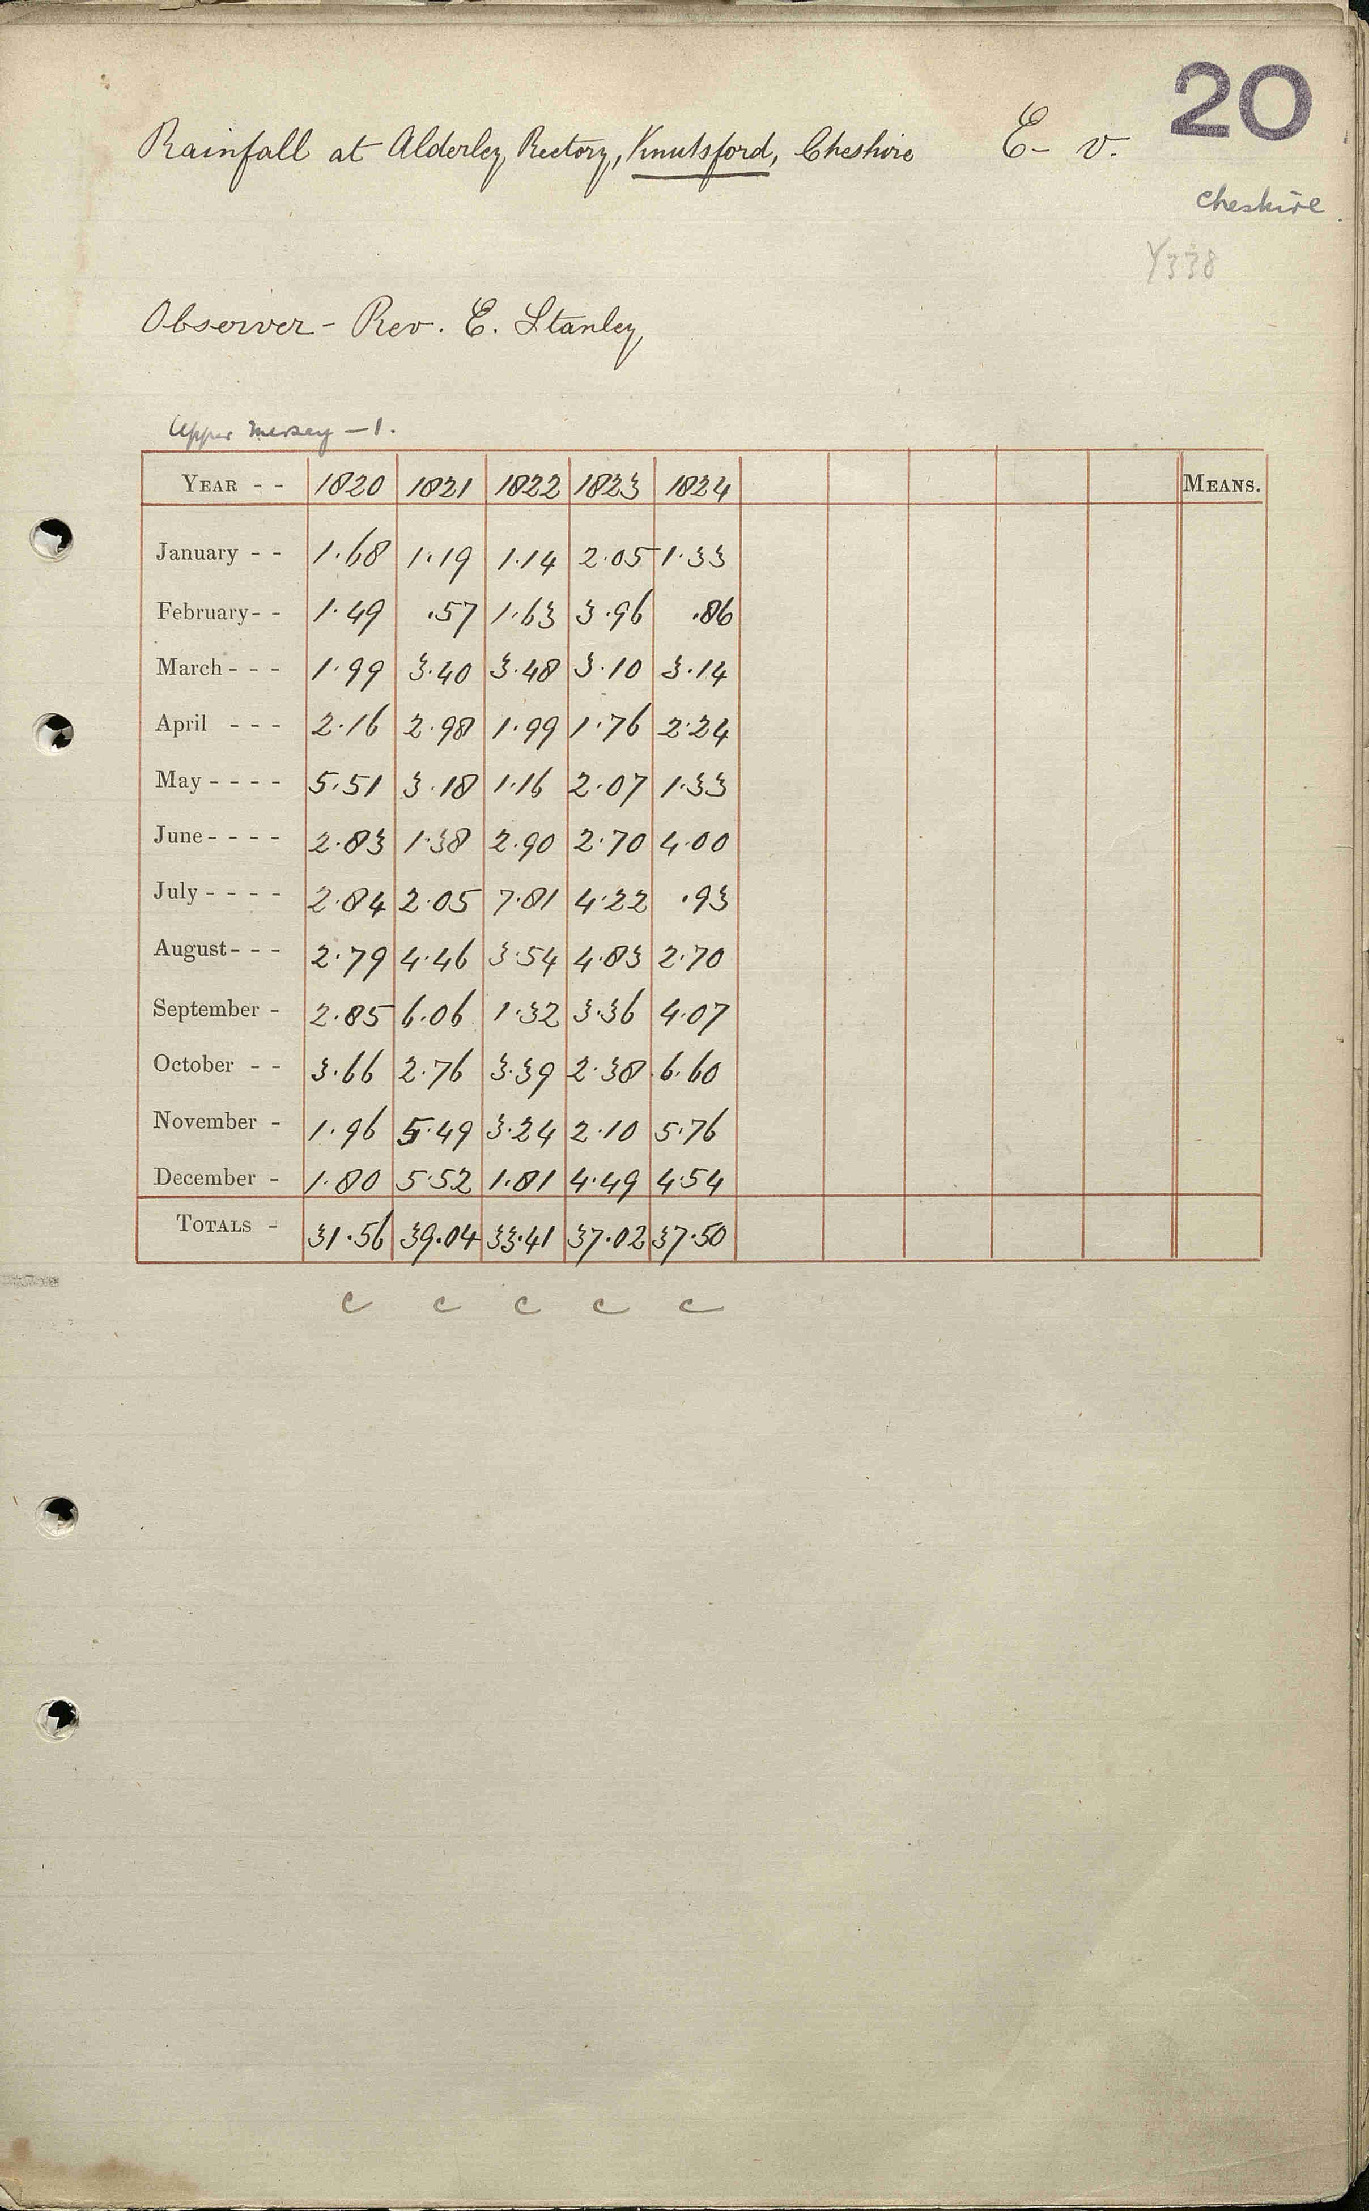 20
Rainfall at Alderley Rectory, Knutsford, Cheshire E- v.
Cheshire
Y338
Observer - Rev. E. Stanley
Upper Mersey - 1.
YEAR - - 1820 1821 1822 1823 1824 MEANS.
January - - 1.68 1.19 1.14 2.05 1.33
February - - 1.49 .57 1.63 3.96 .86
March - - - 1.99 3.40 3.48 3.10 3.14
April - - - 2.16 2.98 1.99 1.76 2.24
May - - - - 5.51 3.18 1.16 2.07 1.33
June - - - - 2.83 1.38 2.90 2.70 4.00
July - - - - 2.84 2.05 7.81 4.22 .93
August - - - 2.79 4.46 3.54 4.83 2.70
September - 2.85 6.06 1.32 3.36 4.07
October - - 3.66 2.76 3.39 2.38 6.60
November - 1.96 5.49 3.24 2.10 5.76
December - 1.80 5.52 1.81 4.49 4.54
TOTALS - 31.56 39.04 33.41 37.02 37.50
c c c c c